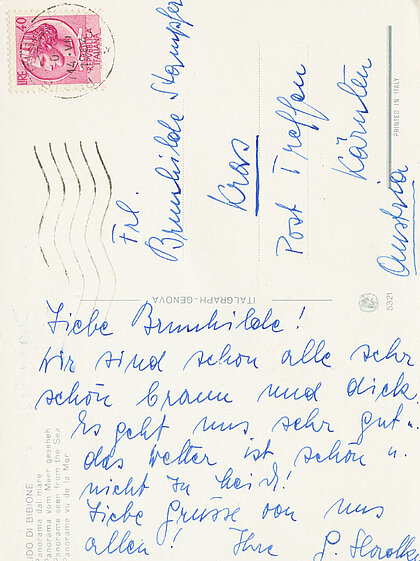 LIRE 40
ITALIANA
Frl.
Brunhilde Stampfer
Kras
Post Treffen
Kärnten
Austria
PRINTED IN ITALY
ITALGRAPH - GENOVA
5321
Liebe Brunhilde!
Wir sind schon alle sehr
schön braun und dick.
Es geht uns sehr gut.
das Wetter ist schön u.
nicht zu heiß!
Liebe Grüsse von uns
allen! Ihre G.
IDO DI BIBIONE
Panorama dal mare
Panorama vom Meer geseheh
Panorama seen from the Sea
Panorama vu de la Mer